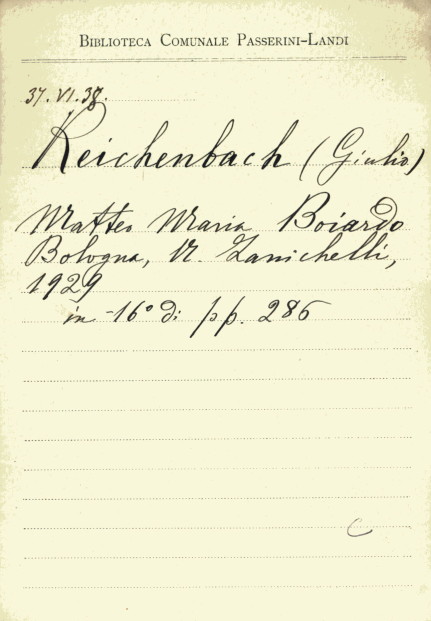 BIBLIOTECA COMUNALE PASSERINI-LANDI
37.VI.38.
Reichenbach (Giulio)
Matteo Maria Boiardo
Bologna, N. Zanichelli,
1929
in-16° di pp. 286
C